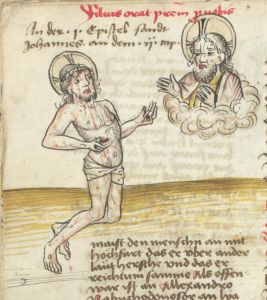 Filius orat prem p nobis
In der .j. Epistel sandt
Johannes. an dem .ij. cap.
mast den menschn an mit
hochfart das er uber ander
laut hersche vnd das er
reichtum samme Als offen-
war ist an Alexandro